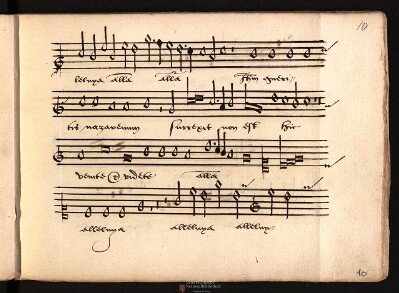 10
leluya alla alla Jhm queri
tis nazarenum surrexit non est hic
venite & videte alla
alleluya alleluya alleluya
10